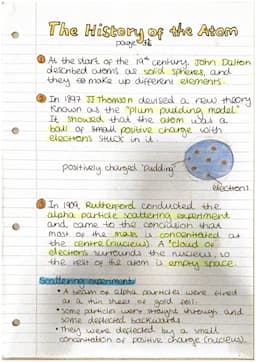 The History of the Atom
page
1 At the start of the 19th century, John Dalton
described atoms as solid spheres, and
they to make up different elements.
2 In 1897 JJ Thomson devised a new theory
Known as the "plum pudding model"
It showed that the atom was a
ball of positive charge with
electrons stuck in it.
positively charged 'pudding'
electrons
3 In 1909, Rutherford conducted the
alpha particle scattering experiment
and came to the conclusion that
most of the mass is concentrated at
the centre (nucleus). A 'cloud of
electrons surrounds the nucleus, so
the rest of the atom is empty space.
Scattering experiment
• A beam of alpha particles were fired
at a thin sheet of gold foil.
• some particles went straight through and
some deflected backwards
• They were deflected by a small
concentration of positive charge (nucleus).